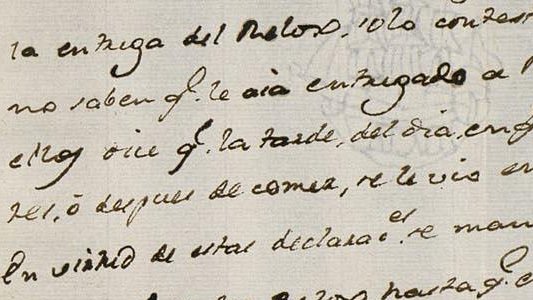 la entrega del Relox, solo contest
no saben q.e le aia entregado a
ellos dice q.e la tarde, del dia, en q
tes, ò despues de comer, se le vio en
En virtud de estas declarac.es se man
hasta q.e